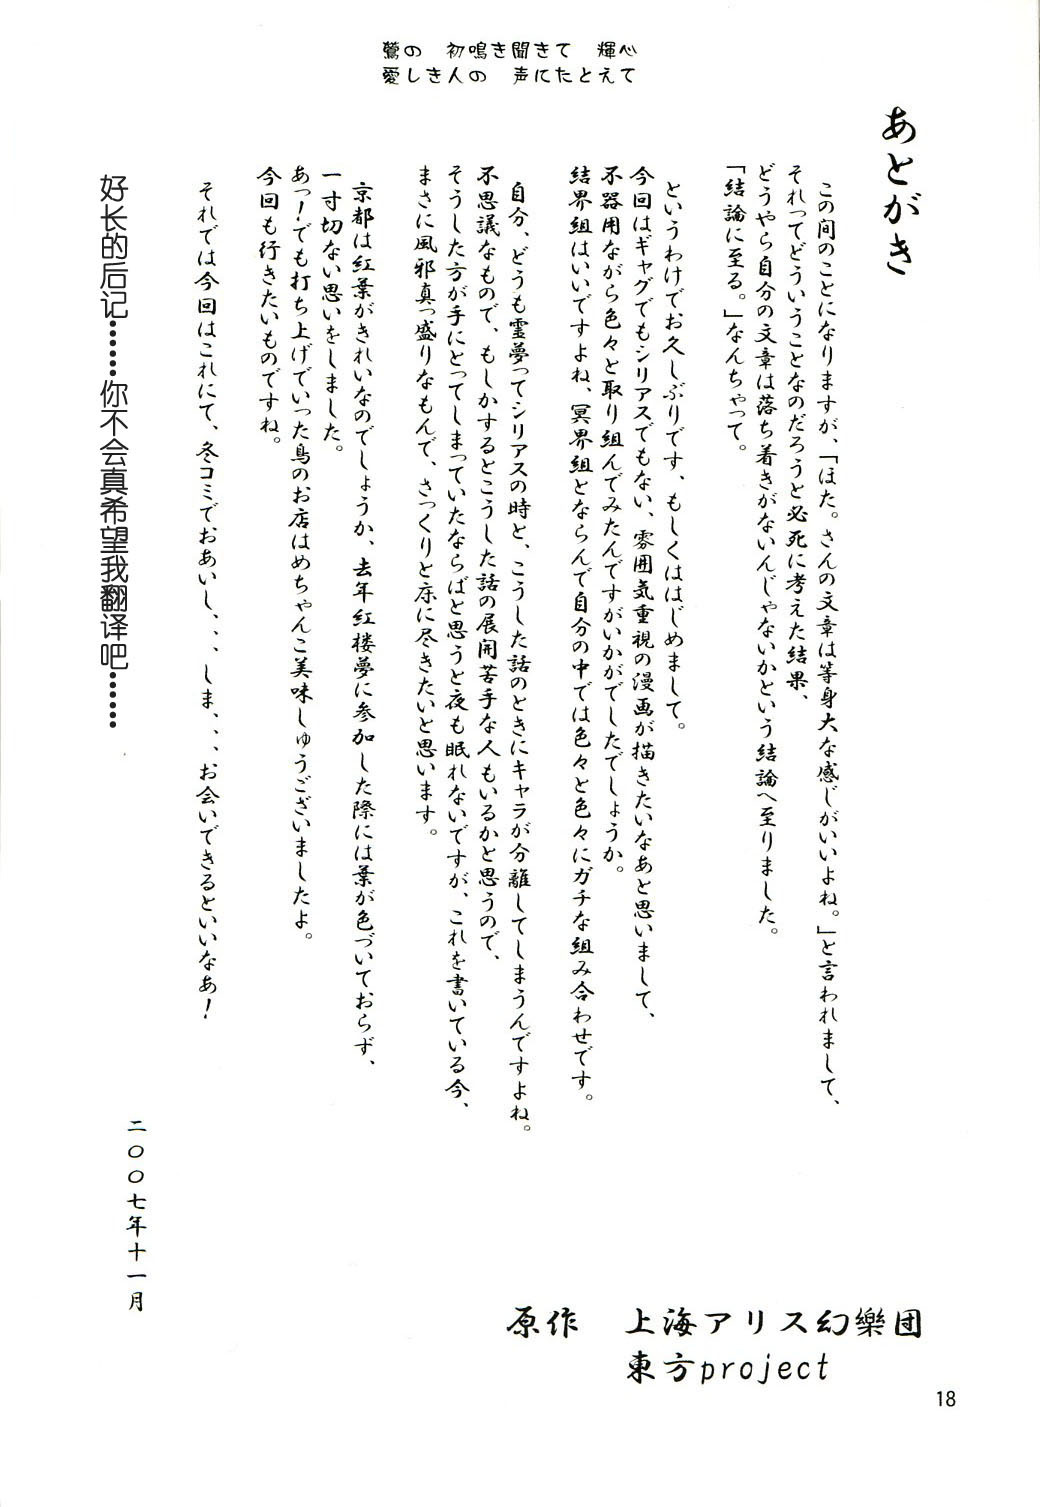 鶯の　初鳴き聞きて　輝心
愛しき人の　声にたとえて
あとがき
この間のことになりますが、「ほた。さんの文章は等身大な感じがいいよね。」と言われまして、
それってどういうことなのだろうと必死に考えた結果、
どうやら自分の文章は落ち着きがないんじゃないかという結論へ至りました。
「結論に至る。」なんちゃって。
というわけでお久しぶりです、もしくははじめまして。
今回はギャグでもシリアスでもない、雰囲気重視の漫画が描きたいなあと思いまして、
不器用ながら色々と取り組んでみたんですがいかがでしたでしょうか。
結界組はいいですよね、冥界組とならんで自分の中では色々と色々にガチな組み合わせです。
自分、どうも霊夢ってシリアスの時と、こうした話のときにキャラが分離してしまうんですよね。
不思議なもので、もしかするとこうした話の展開苦手な人もいるかと思うので、
そうした方が手にとってしまっていたならばと思うと夜も眠れないですが、これを書いている今、
まさに風邪真っ盛りなもんで、さっくりと床に尽きたいと思います。
京都は紅葉がきれいなのでしょうか、去年紅楼夢に参加した際には葉が色づいておらず、
一寸切ない思いをしました。
あっ！でも打ち上げでいった鳥のお店はめちゃんこ美味しゅうございましたよ。
今回も行きたいものですね。
それでは今回はこれにて、冬コミでおあいし、、、しま、、、お会いできるといいなあ！
二〇〇七年十一月
好长的后记……你不会真希望我翻译吧……
原作　上海アリス幻樂団
東方project
18